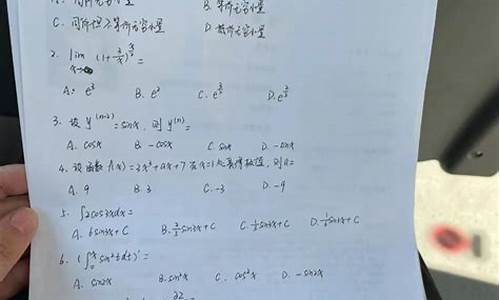 A. 同阶无穷小量 B. 等阶无穷小量
C. 同阶但不等阶无穷小量 D. 高阶无穷小量
2. lim (1+
A. e³ B. e² C. e D. e
3. 设 y⁽ⁿ⁻²⁾ = sinx, 则 y⁽ⁿ⁾ =
A. cosx B. -cosx C. sinx D. -sinx
4. 设函数 f(x) = 2x³+ax+7 在x=1处取得极值, 则a=
A. 9 B. 3 C. -3 D. -9
5. ∫2cos3xdx =
A. 6sin3x + C B. 2/3 sin3x + C C. 1/3 sin3x + C D. 1/6 sin3x + C
6. (∫₀ˣ sin²t dt)' =
A. sin2x B. sin²x C. cos²x D. -sin2x